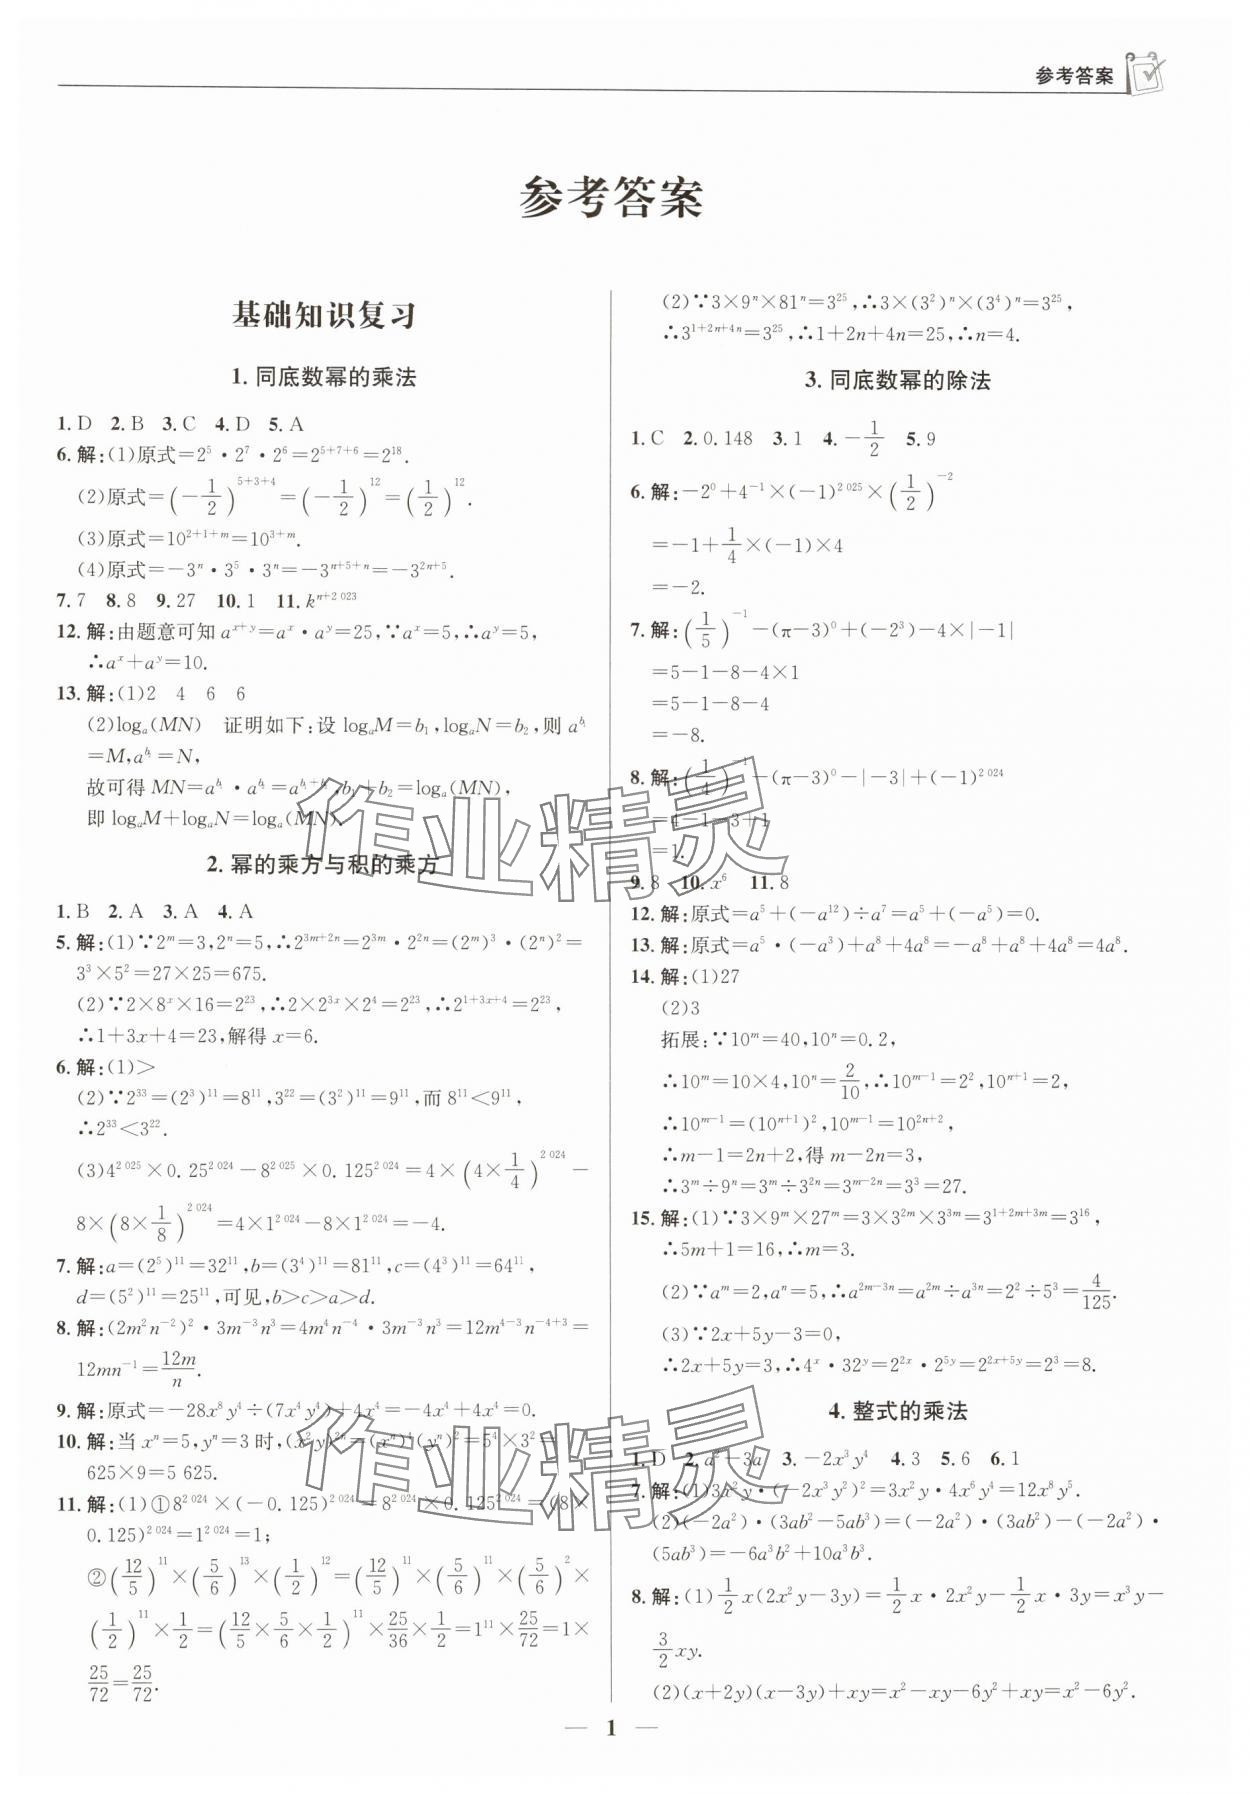 参考答案
参考答案
基础知识复习
1. 同底数幂的乘法
1. D  2. B  3. C  4. D  5. A
6. 解:(1)原式=2⁵·2⁷·2⁶=2⁵⁺⁷⁺⁶=2¹⁸.
(2)原式=(-1/2)⁵⁺³⁺⁴=(-1/2)¹²=(1/2)¹².
(3)原式=10^{2+1+m}=10^{3+m}.
(4)原式=-3ⁿ·3⁵·3ⁿ=-3^{n+5+n}=-3^{2n+5}.
7. 7  8. 8  9. 27  10. 1  11. k^{n+2 023}
12. 解:由题意可知 a^{x+y}=a^x·a^y=25,∵a^x=5,∴a^y=5,
∴a^x+a^y=10.
13. 解:(1)2  4  6  6
(2)log_a(MN)  证明如下:设 log_aM=b₁,log_aN=b₂,则 a^{b₁}
=M,a^{b₂}=N,
故可得 MN=a^{b₁}·a^{b₂}=a^{b₁+b₂},b₁+b₂=log_a(MN),
即 log_aM+log_aN=log_a(MN).
2. 幂的乘方与积的乘方
1. B  2. A  3. A  4. A
5. 解:(1)∵2^m=3,2^n=5,∴2^{3m+2n}=2^{3m}·2^{2n}=(2^m)³·(2^n)²=
3³×5²=27×25=675.
(2)∵2×8^x×16=2²³,∴2×2^{3x}×2⁴=2²³,∴2^{1+3x+4}=2²³,
∴1+3x+4=23,解得 x=6.
6. 解:(1)>
(2)∵2³³=(2³)¹¹=8¹¹,3²²=(3²)¹¹=9¹¹,而 8¹¹<9¹¹,
∴2³³<3²².
(3)4^{2 025}×0.25^{2 024}-8^{2 025}×0.125^{2 024}=4×(4×1/4)^{2 024}-
8×(8×1/8)^{2 024}=4×1^{2 024}-8×1^{2 024}=-4.
7. 解:a=(2⁵)¹¹=32¹¹,b=(3⁴)¹¹=81¹¹,c=(4³)¹¹=64¹¹,
d=(5²)¹¹=25¹¹,可见,b>c>a>d.
8. 解:(2m²n⁻²)²·3m⁻³n³=4m⁴n⁻⁴·3m⁻³n³=12m⁴⁻³n⁻⁴⁺³=
12mn⁻¹=12m/n.
9. 解:原式=-28x⁸y⁴÷(7x⁴y⁴)+4x⁴=-4x⁴+4x⁴=0.
10. 解:当 xⁿ=5,yⁿ=3 时,(x²y)²ⁿ=(xⁿ)⁴(yⁿ)²=5⁴×3²=
625×9=5 625.
11. 解:(1)①8^{2 024}×(-0.125)^{2 024}=8^{2 024}×0.125^{2 024}=(8×
0.125)^{2 024}=1^{2 024}=1;
②(12/5)¹¹×(5/6)¹³×(1/2)¹²=(12/5)¹¹×(5/6)¹¹×(5/6)²×
(1/2)¹¹×1/2=(12/5×5/6×1/2)¹¹×25/36×1/2=1¹¹×25/72=1×
25/72=25/72.
(2)∵3×9ⁿ×81ⁿ=3²⁵,∴3×(3²)ⁿ×(3⁴)ⁿ=3²⁵,
∴3^{1+2n+4n}=3²⁵,∴1+2n+4n=25,∴n=4.
3. 同底数幂的除法
1. C  2. 0.148  3. 1  4. -1/2  5. 9
6. 解:-2⁰+4⁻¹×(-1)^{2 025}×(1/2)⁻²
=-1+1/4×(-1)×4
=-2.
7. 解:(1/5)⁻¹-(π-3)⁰+(-2³)-4×|-1|
=5-1-8-4×1
=5-1-8-4
=-8.
8. 解:(1/4)⁻¹-(π-3)⁰-|-3|+(-1)^{2 024}
=4-1-3+1
=1.
9. 8  10. x⁶  11. 8
12. 解:原式=a⁵+(-a¹²)÷a⁷=a⁵+(-a⁵)=0.
13. 解:原式=a⁵·(-a³)+a⁸+4a⁸=-a⁸+a⁸+4a⁸=4a⁸.
14. 解:(1)27
(2)3
拓展:∵10^m=40,10^n=0.2,
∴10^m=10×4,10^n=2/10,∴10^{m-1}=2²,10^{n+1}=2,
∴10^{m-1}=(10^{n+1})²,10^{m-1}=10^{2n+2},
∴m-1=2n+2,得 m-2n=3,
∴3^m÷9^n=3^m÷3^{2n}=3^{m-2n}=3³=27.
15. 解:(1)∵3×9^m×27^m=3×3^{2m}×3^{3m}=3^{1+2m+3m}=3¹⁶,
∴5m+1=16,∴m=3.
(2)∵a^m=2,a^n=5,∴a^{2m-3n}=a^{2m}÷a^{3n}=2²÷5³=4/125.
(3)∵2x+5y-3=0,
∴2x+5y=3,∴4^x·32^y=2^{2x}·2^{5y}=2^{2x+5y}=2³=8.
4. 整式的乘法
1. D  2. a²-3a  3. -2x³y⁴  4. 3  5. 6  6. 1
7. 解:(1)3x²y·(-2x³y²)²=3x²y·4x⁶y⁴=12x⁸y⁵.
(2)(-2a²)·(3ab²-5ab³)=(-2a²)·(3ab²)-(-2a²)·
(5ab³)=-6a³b²+10a³b³.
8. 解:(1)1/2x(2x²y-3y)=1/2x·2x²y-1/2x·3y=x³y-
3/2xy.
(2)(x+2y)(x-3y)+xy=x²-xy-6y²+xy=x²-6y².
— 1 —
作业精灵
作业精灵